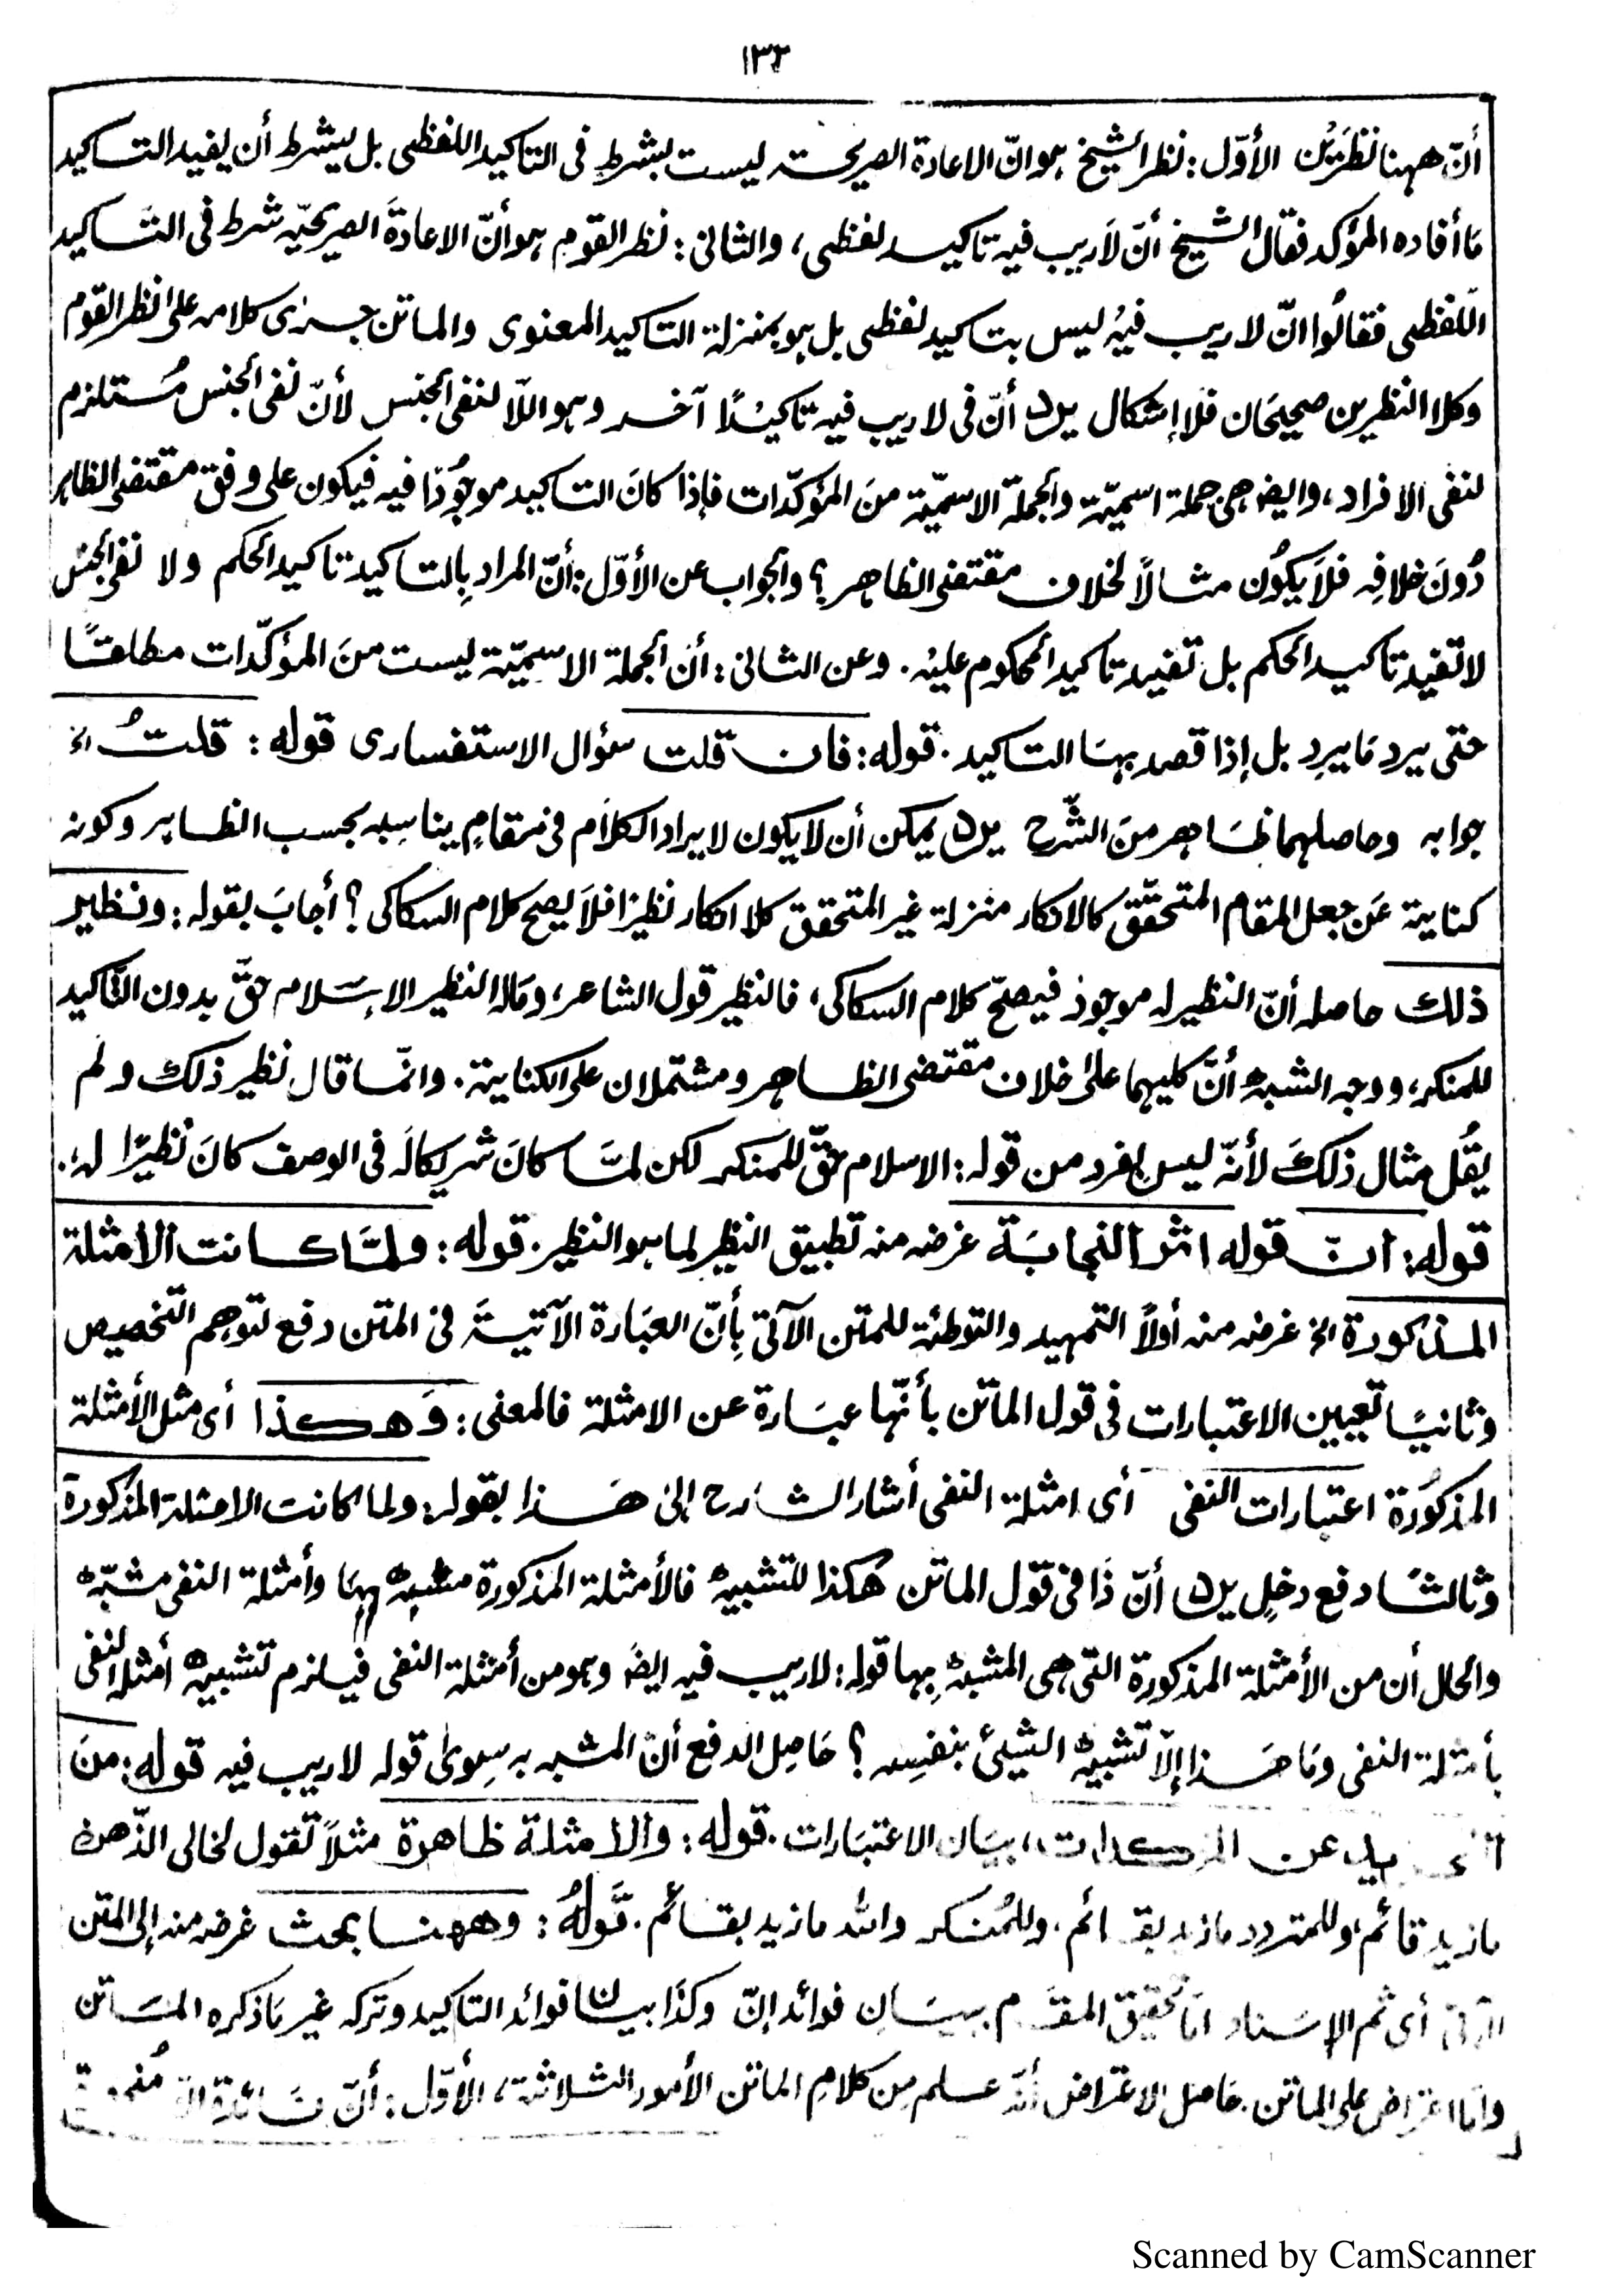 ١٣٢
أنّ ههنا نظَرَيْن الأوّل: نظر الشيخ هو انّ الاعادة الصريحة ليست بشرطٍ فى التاكيد اللفظى بل يشرط أن يفيد التاكيد
مَا أفاده المؤكد فقال الشيخ أنّ لَاريب فيه تاكيد لفظى، والثانى: نظر القوم هو أنّ الاعادةَ الصريحيّه شرط فى التَّاكيد
اللّفظى فقالُوا انّ لا ريب فيهُ ليس بتاكيد لفظى بل هو بمنزلة التاكيد المعنوى والماتن جرٰى كلامه على نظر القوم
وكلا النظرين صحيحَان فلا إشكال يرد أنّ فى لا ريب فيه تاكيْدًا آخر وهو اللّا لنفى الجنس لأنّ نفى الجنس مُستلزم
لنفى الافراد، وايضً هى جملة اسميّة والجملة الاسميّة منَ المؤكّدات فإذا كانَ التاكيد موجُودًا فيه فيكون على وفق مقتضى الظاهر
دُونَ خلافِه فلَا يكُون مثالاً لخلاف مقتضى الظاهر؟ والجواب عن الأوّل: أنّ المراد بِالتاكيد تاكيد الحكم ولا نفى الجنس
لا تفيد تاكيد الحكم بل تفيد تاكيد المحكوم عليْه. وعن الثانى: أن الجملة الاسميّة ليست منَ المؤكّدات مطلقًا
حتى يرد مَا يرِد بل إذا قصد بهَا التاكيد. قوله: فان قلت سؤال الاستفسارى قوله: قلتُ الخ
جوابه وحاصلهما ظاهر منَ الشّرح يرد يمكن أن لا يكون لايراد الكلَام فى مَقامٍ يناسِبه بحسب الظاهر وكونه
كناية عَن جعل المقام المتحقّق كالانكار منزلة غير المتحقق كلا انكار نظيرًا فلَا يصح كلام السكاكى؟ أجابَ بقوله: ونظير
ذلك حاصله أنّ النظير له موجود فيصحّ كلام السكاكى، فالنظير قول الشاعر، وماله النظير الإسلام حقّ بدون التّاكيد
للمنكر، ووجه الشبه أنّ كليهما على خلاف مقتضى الظاهر ومشتملان على الكناية. وانّما قال نظير ذلك ولم
يقُل مثال ذلكَ لأنّه ليس بفرد من قوله: الاسلام حقّ للمنكر لكن لمّا كانَ شريكا لَه فى الوصف كانَ نظيرًا له.
قوله: انّ قوله اثر النجابَة غرضه منه تطبيق النظير لما هو النظير. قوله: ولمَّا كانت الأمثلة
المذكورة الخ غرضه منه أولاً التمهيد والتوطئة للمتن الآتى بأنّ العبَارة الآتيةَ فى المتن دفع لتوهم التخصيص
وثانيًا تعيين الاعتبارات فى قول الماتن بأنّها عبَارة عن الامثلة فالمعنى: وَهكذا أى مثل الأمثلة
المذكُورة اعتبارات النفى أى امثلة النفى أشار الشارح إلى هَذا بقوله: ولما كانت الامثلة المذكورة
وثالثًا دفع دخلٍ يرد أنّ ذَا فى قول الماتن هٰكذا للتشبيه فالأمثلة المذكورة مشبه بهَا وأمثلة النفى مشبّه
والحال أن من الأمثلة المذكورة التى هى المشبهْ بِها قوله: لاريب فيه ايضً وهو من أمثلة النفى فيلزم تشبيه أمثلة النفى
بأمثلة النفى ومَا هَذا إلّا تشبيه الشيئ بنفسِه؟ حَاصِل الدفع أنّ المشبه به سِوىٰ قوله لا ريب فيه قوله: منَ
عن بيَان الاعتبَارات. قوله: والامثلة ظاهرة مثلاً تقول لخالى الذّهن
ما زيد قائم، وللمتردد ما زيد بقائم. وللمُنكر والله ما زيد بقائم. قَولهُ: وههنا بحث غرضه منه إلى المتن
أى ثم الإسناد امّا تحقيق المقام ببيَانِ فوائد إنّ وكذَا بيان فوائد التاكيد وتركه غير مَا ذكره المَاتن
وامّا اعتراض على الماتن. حَاصل الاعتراض أنّه علم مِن كلامِ الماتن الأمور الثلاثة، الأوّل: أنّ
Scanned by CamScanner